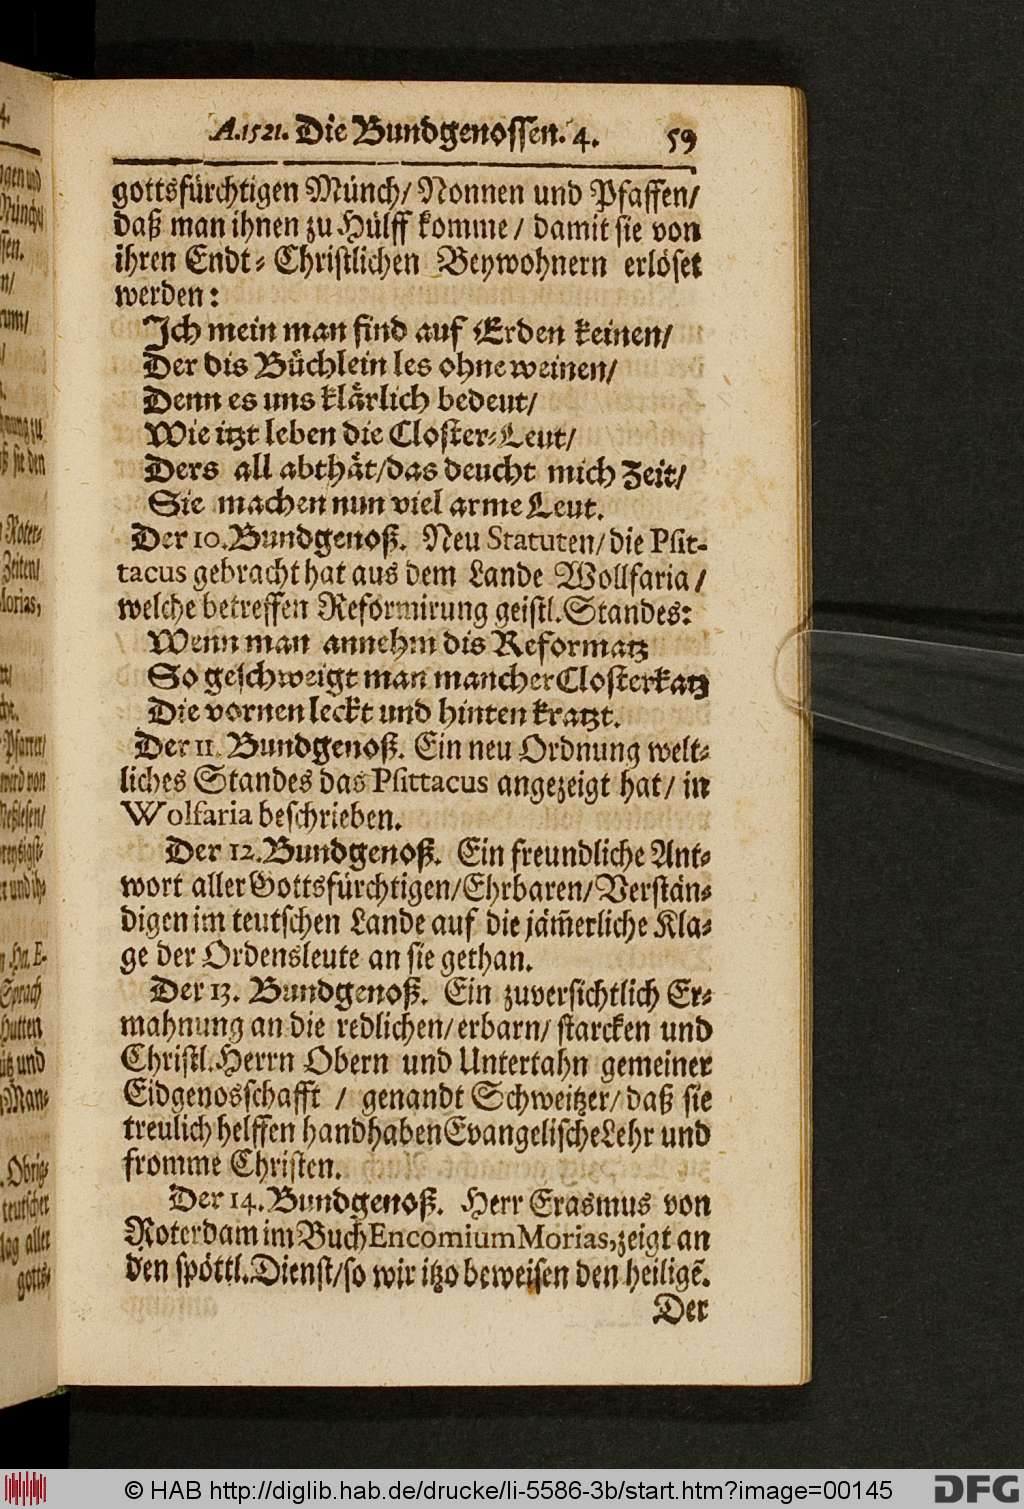 A. 1521. Die Bundgenossen. 4. 59
gottsfürchtigen Münch/ Nonnen und Pfaffen/
daß man ihnen zu Hülff komme/ damit sie von
ihren Endt-Christlichen Beywohnern erlöset
werden:
Ich mein man find auf Erden keinen/
Der dis Büchlein les ohne weinen/
Denn es uns klärlich bedeut/
Wie itzt leben die Closter-Leut/
Ders all abthät/das deucht mich Zeit/
Sie machen nun viel arme Leut.
Der 10. Bundgenoß. Neu Statuten/die Psit-
tacus gebracht hat aus dem Lande Wollfaria/
welche betreffen Reformirung geistl. Standes:
Wenn man annehm dis Reformatz
So geschweigt man mancher Closterkatz
Die vornen leckt und hinten kratzt.
Der 11. Bundgenoß. Ein neu Ordnung welt-
liches Standes das Psittacus angezeigt hat/ in
Wolfaria beschrieben.
Der 12. Bundgenoß. Ein freundliche Ant-
wort aller Gottsfürchtigen/Ehrbaren/Verstän-
digen im teutschen Lande auf die jäm̃erliche Kla-
ge der Ordensleute an sie gethan.
Der 13. Bundgenoß. Ein zuversichtlich Er-
mahnung an die redlichen/erbarn/ starcken und
Christl. Herrn Obern und Untertahn gemeiner
Eidgenosschafft / genandt Schweitzer/ daß sie
treulich helffen handhaben Evangelische Lehr und
fromme Christen.
Der 14. Bundgenoß. Herr Erasmus von
Roterdam im Buch Encomium Morias, zeigt an
den spöttl. Dienst/so wir itzo beweisen den heiligẽ.
Der
© HAB http://diglib.hab.de/drucke/li-5586-3b/start.htm?image=00145
DFG